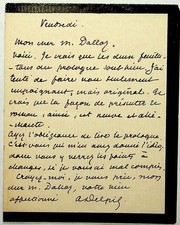 Vendredi.
Mon cher M. Dalloz,
Voici, je crois que les deux feuille-
tons du prologue sont bien. J'ai
tenté de faire non seulement
empoignant, mais original. Je
crois que la façon de présenter le
roman, ainsi, est neuve et allé-
chante.
Ayez l'obligeance de lire le prologue
c'est vous qui m'en avez donné l'idée,
donc vous y verrez les points à
changer, si je vous ai mal compris.
Croyez-moi, je vous prie, mon
cher M. Dalloz, votre bien
affectionné
ADelpit